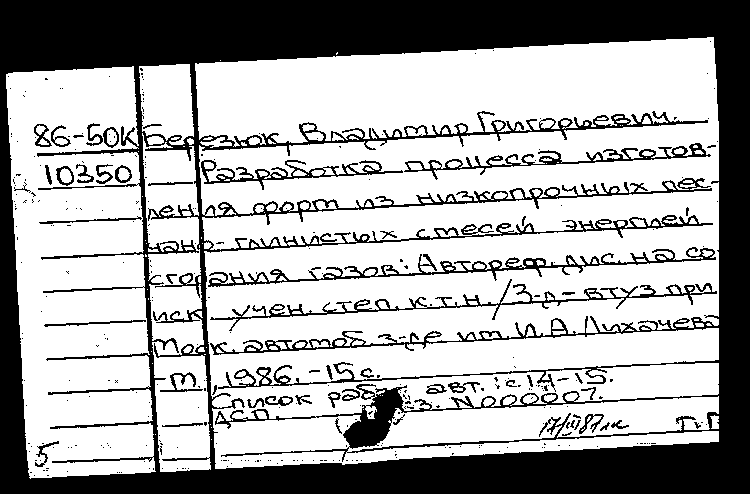 86-50К Березюк, Владимир Григорьевич.
10350 Разработка процесса изготов-
ления форм из низкопрочных пес-
чано-глинистых смесей энергией
сгорания газов: Автореф. дис. на со
иск. учен. степ. к.т.н. / З-д-втуз при
Моск. автомоб. з-де им. И.А. Лихачева
-М., 1986. -15с.
Список раб. авт.: с 14-15.
ДСП. Э. N000007.
17/III 87
5